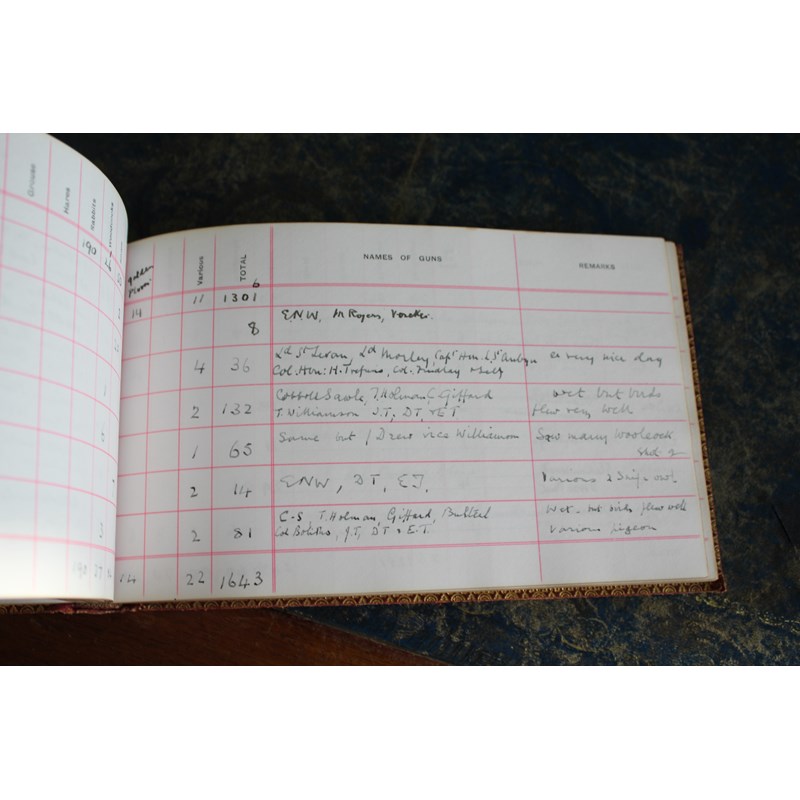 Grouse Hares Rabbits Woodcocks Various TOTAL NAMES OF GUNS REMARKS
190
golden
14 11 1301
6
8 ENW, M Rogers,
4 36 Ld St Levan, Ld Morley, Capt Hon. L. St Aubyn a very nice day
Col. Hon: H. Trefusis, Col.
2 132 T. Holman C. Giffard wet but birds
T. Williamson J.T, DT & ET flew very well
1 65 Same but J Drew vice Williamson Saw many Woodcock
shot 2
2 14 ENW, DT, EJ. Various 2
2 81 C-S, T. Holman, Giffard, Bulteel Wet - but birds flew well
Col Bolitho, J.T, DT & E.T. Various pigeon
3
190 27 14 22 1643